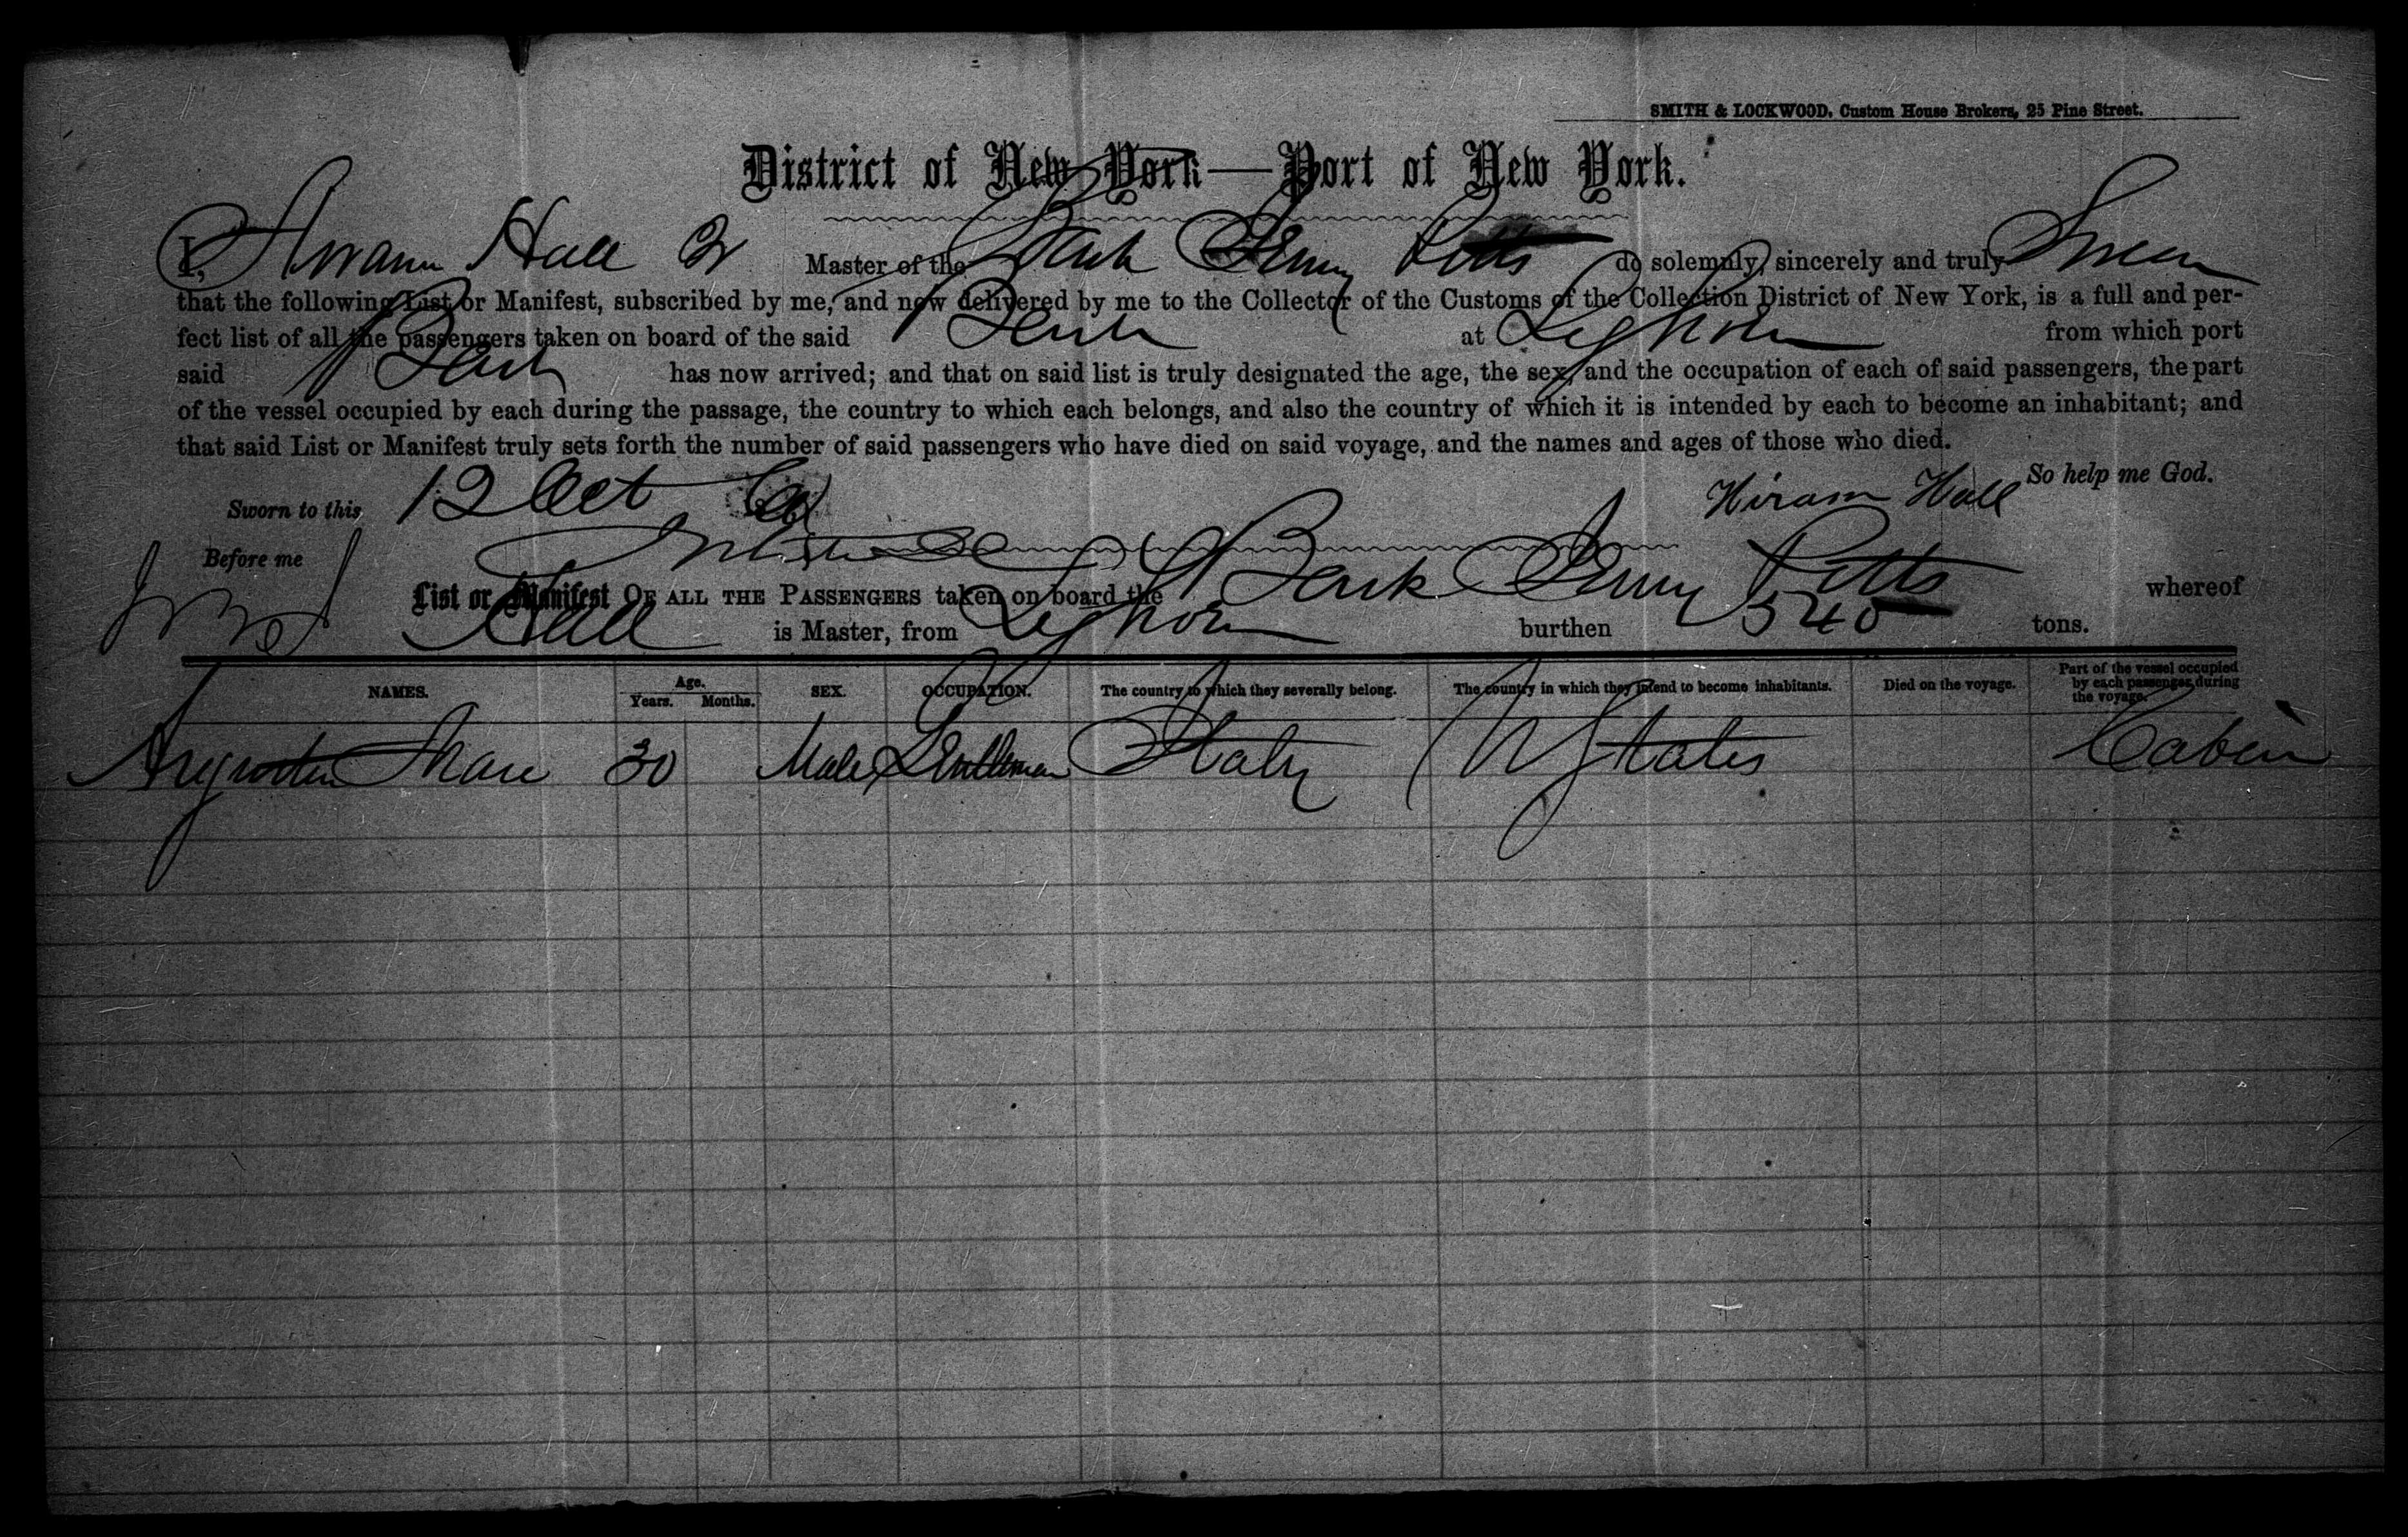 SMITH & LOCKWOOD, Custom House Brokers, 25 Pine Street.
District of New York—Port of New York.
I, Hiram Hall Jr Master of the Bark Jenny Pitts do solemnly, sincerely and truly Swear
that the following List or Manifest, subscribed by me, and now delivered by me to the Collector of the Customs of the Collection District of New York, is a full and per-
fect list of all the passengers taken on board of the said Bark at Leghorn from which port
said Bark has now arrived; and that on said list is truly designated the age, the sex, and the occupation of each of said passengers, the part
of the vessel occupied by each during the passage, the country to which each belongs, and also the country of which it is intended by each to become an inhabitant; and
that said List or Manifest truly sets forth the number of said passengers who have died on said voyage, and the names and ages of those who died.
So help me God.
Sworn to this 12 Oct Hiram Hall
Before me
List or Manifest OF ALL THE PASSENGERS taken on board the Bark Jenny Pitts whereof
Hall is Master, from Leghorn burthen 540 tons.
NAMES. Age. Years. Months. SEX. OCCUPATION. The country to which they severally belong. The country in which they intend to become inhabitants. Died on the voyage. Part of the vessel occupied by each passenger during the voyage.
30 Male Gentleman Italy U States Cabin